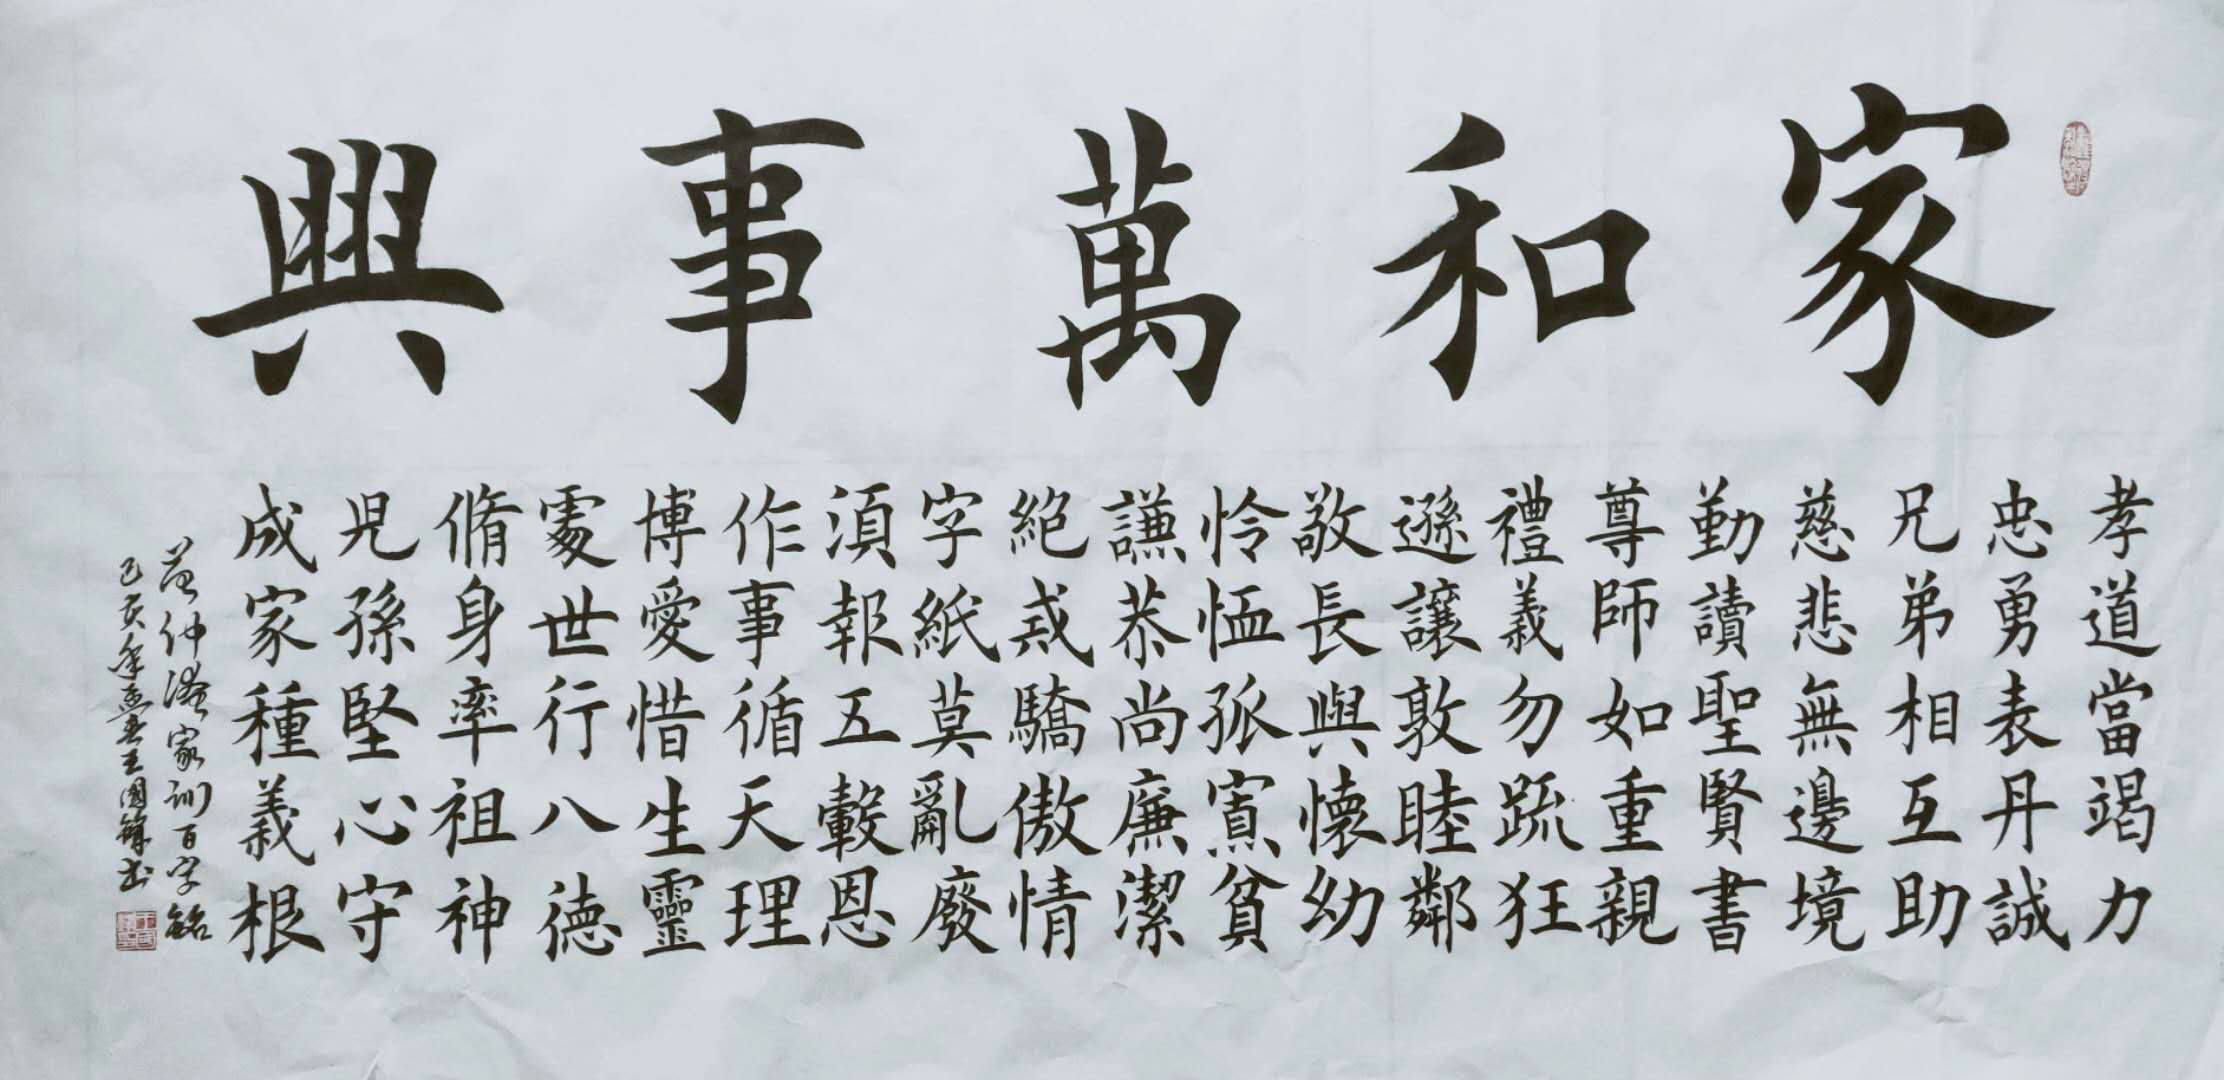 家和萬事興
孝道當竭力
忠勇表丹誠
兄弟相互助
慈悲無邊境
勤讀聖賢書
尊師如重親
禮義勿疏狂
遜讓敦睦鄰
敬長與懷幼
憐恤孤寡貧
謙恭尚廉潔
絕戒驕傲情
字紙莫亂廢
須報五穀恩
作事循天理
博愛惜生靈
處世行八德
脩身率祖神
兒孫堅心守
成家種義根
范仲淹家訓百字銘
己亥年孟春王國鋒書